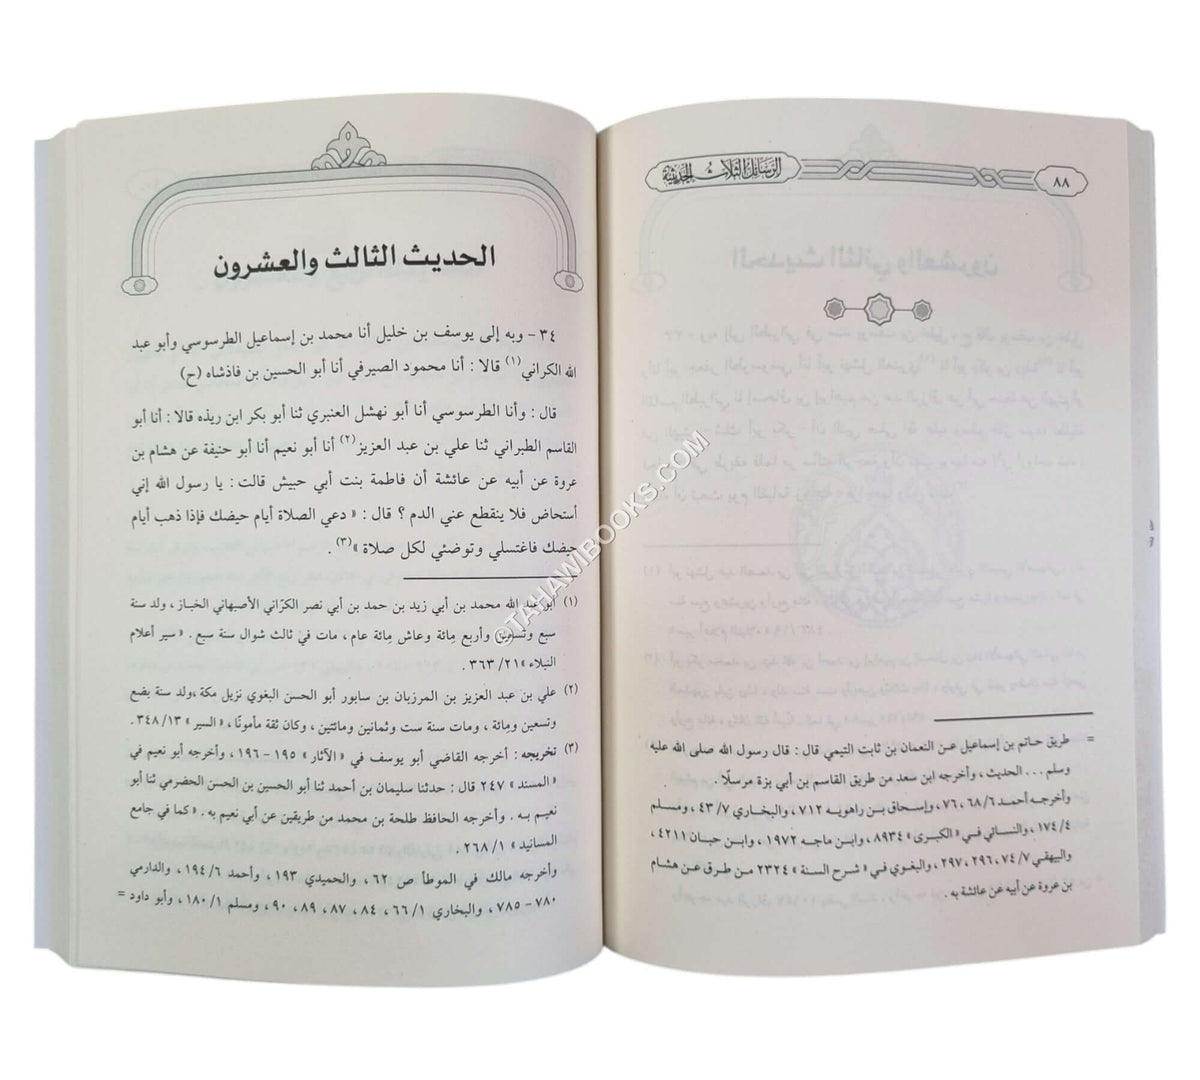 ٨٨
الرسائل الثلاث الحديثية
= طريق حاتم بن إسماعيل عن النعمان بن ثابت التيمي قال: قال رسول الله صلى الله عليه
وسلم ... الحديث، وأخرجه ابن سعد من طريق القاسم بن أبي بزة مرسلًا.
وأخرجه أحمد ٦/ ٦٨، ٧٦، وإسحاق بن راهويه ٧١٢، والبخاري ٧/ ٤٣، ومسلم
٤/ ١٧٤، والنسائي في «الكبرى» ٨٩٣٤، وابن ماجه ١٩٧٢، وابن حبان ٤٢١١،
والبيهقي ٧/ ٧٤، ٢٩٦، ٢٩٧، والبغوي في «شرح السنة» ٢٣٢٤ من طرق عن هشام
بن عروة عن أبيه عن عائشة به.
الحديث الثالث والعشرون
٣٤- وبه إلى يوسف بن خليل أنا محمد بن إسماعيل الطرسوسي وأبو عبد
الله الكراني(١) قالا: أنا محمود الصيرفي أنا أبو الحسين بن فاذشاه (ح)
قال: وأنا الطرسوسي أنا أبو نهشل العنبري ثنا أبو بكر ابن ريذه قالا: أنا أبو
القاسم الطبراني ثنا علي بن عبد العزيز(٢) أنا أبو نعيم أنا أبو حنيفة عن هشام بن
عروة عن أبيه عن عائشة أن فاطمة بنت أبي حبيش قالت: يا رسول الله إني
أستحاض فلا ينقطع عني الدم؟ قال: «دعي الصلاة أيام حيضك فإذا ذهب أيام
حيضك فاغتسلي وتوضئي لكل صلاة»(٣).
(١) أبو عبد الله محمد بن أبي زيد بن حمد بن أبي نصر الكرّاني الأصبهاني الخباز، ولد سنة
سبع وتسعين وأربع مِائة وعاش مِائة عام، مات في ثالث شوال سنة سبع. «سير أعلام
النبلاء» ٢١/ ٣٦٣.
(٢) علي بن عبد العزيز بن المرزبان بن سابور أبو الحسن البغوي نزيل مكة، ولد سنة بضع
وتسعين ومِائة، ومات سنة ست وثمانين ومائتين، وكان ثقة مأمونًا، «السير» ١٣/ ٣٤٨.
(٣) تخريجه: أخرجه القاضي أبو يوسف في «الآثار» ١٩٥- ١٩٦، وأخرجه أبو نعيم في
«المسند» ٢٤٧ قال: حدثنا سليمان بن أحمد ثنا أبو الحسين بن الحسن الحضرمي ثنا أبو
نعيم به. وأخرجه الحافظ طلحة بن محمد من طريقين عن أبي نعيم به. «كما في جامع
المسانيد» ١/ ٢٦٨.
وأخرجه مالك في الموطأ ص ٦٢، والحميدي ١٩٣، وأحمد ٦/ ١٩٤، والدارمي
٧٨٠- ٧٨٥، والبخاري ١/ ٦٦، ٨٤، ٨٧، ٨٩، ٩٠، ومسلم ١/ ١٨٠، وأبو داود =
©TAHAWIBOOKS.COM